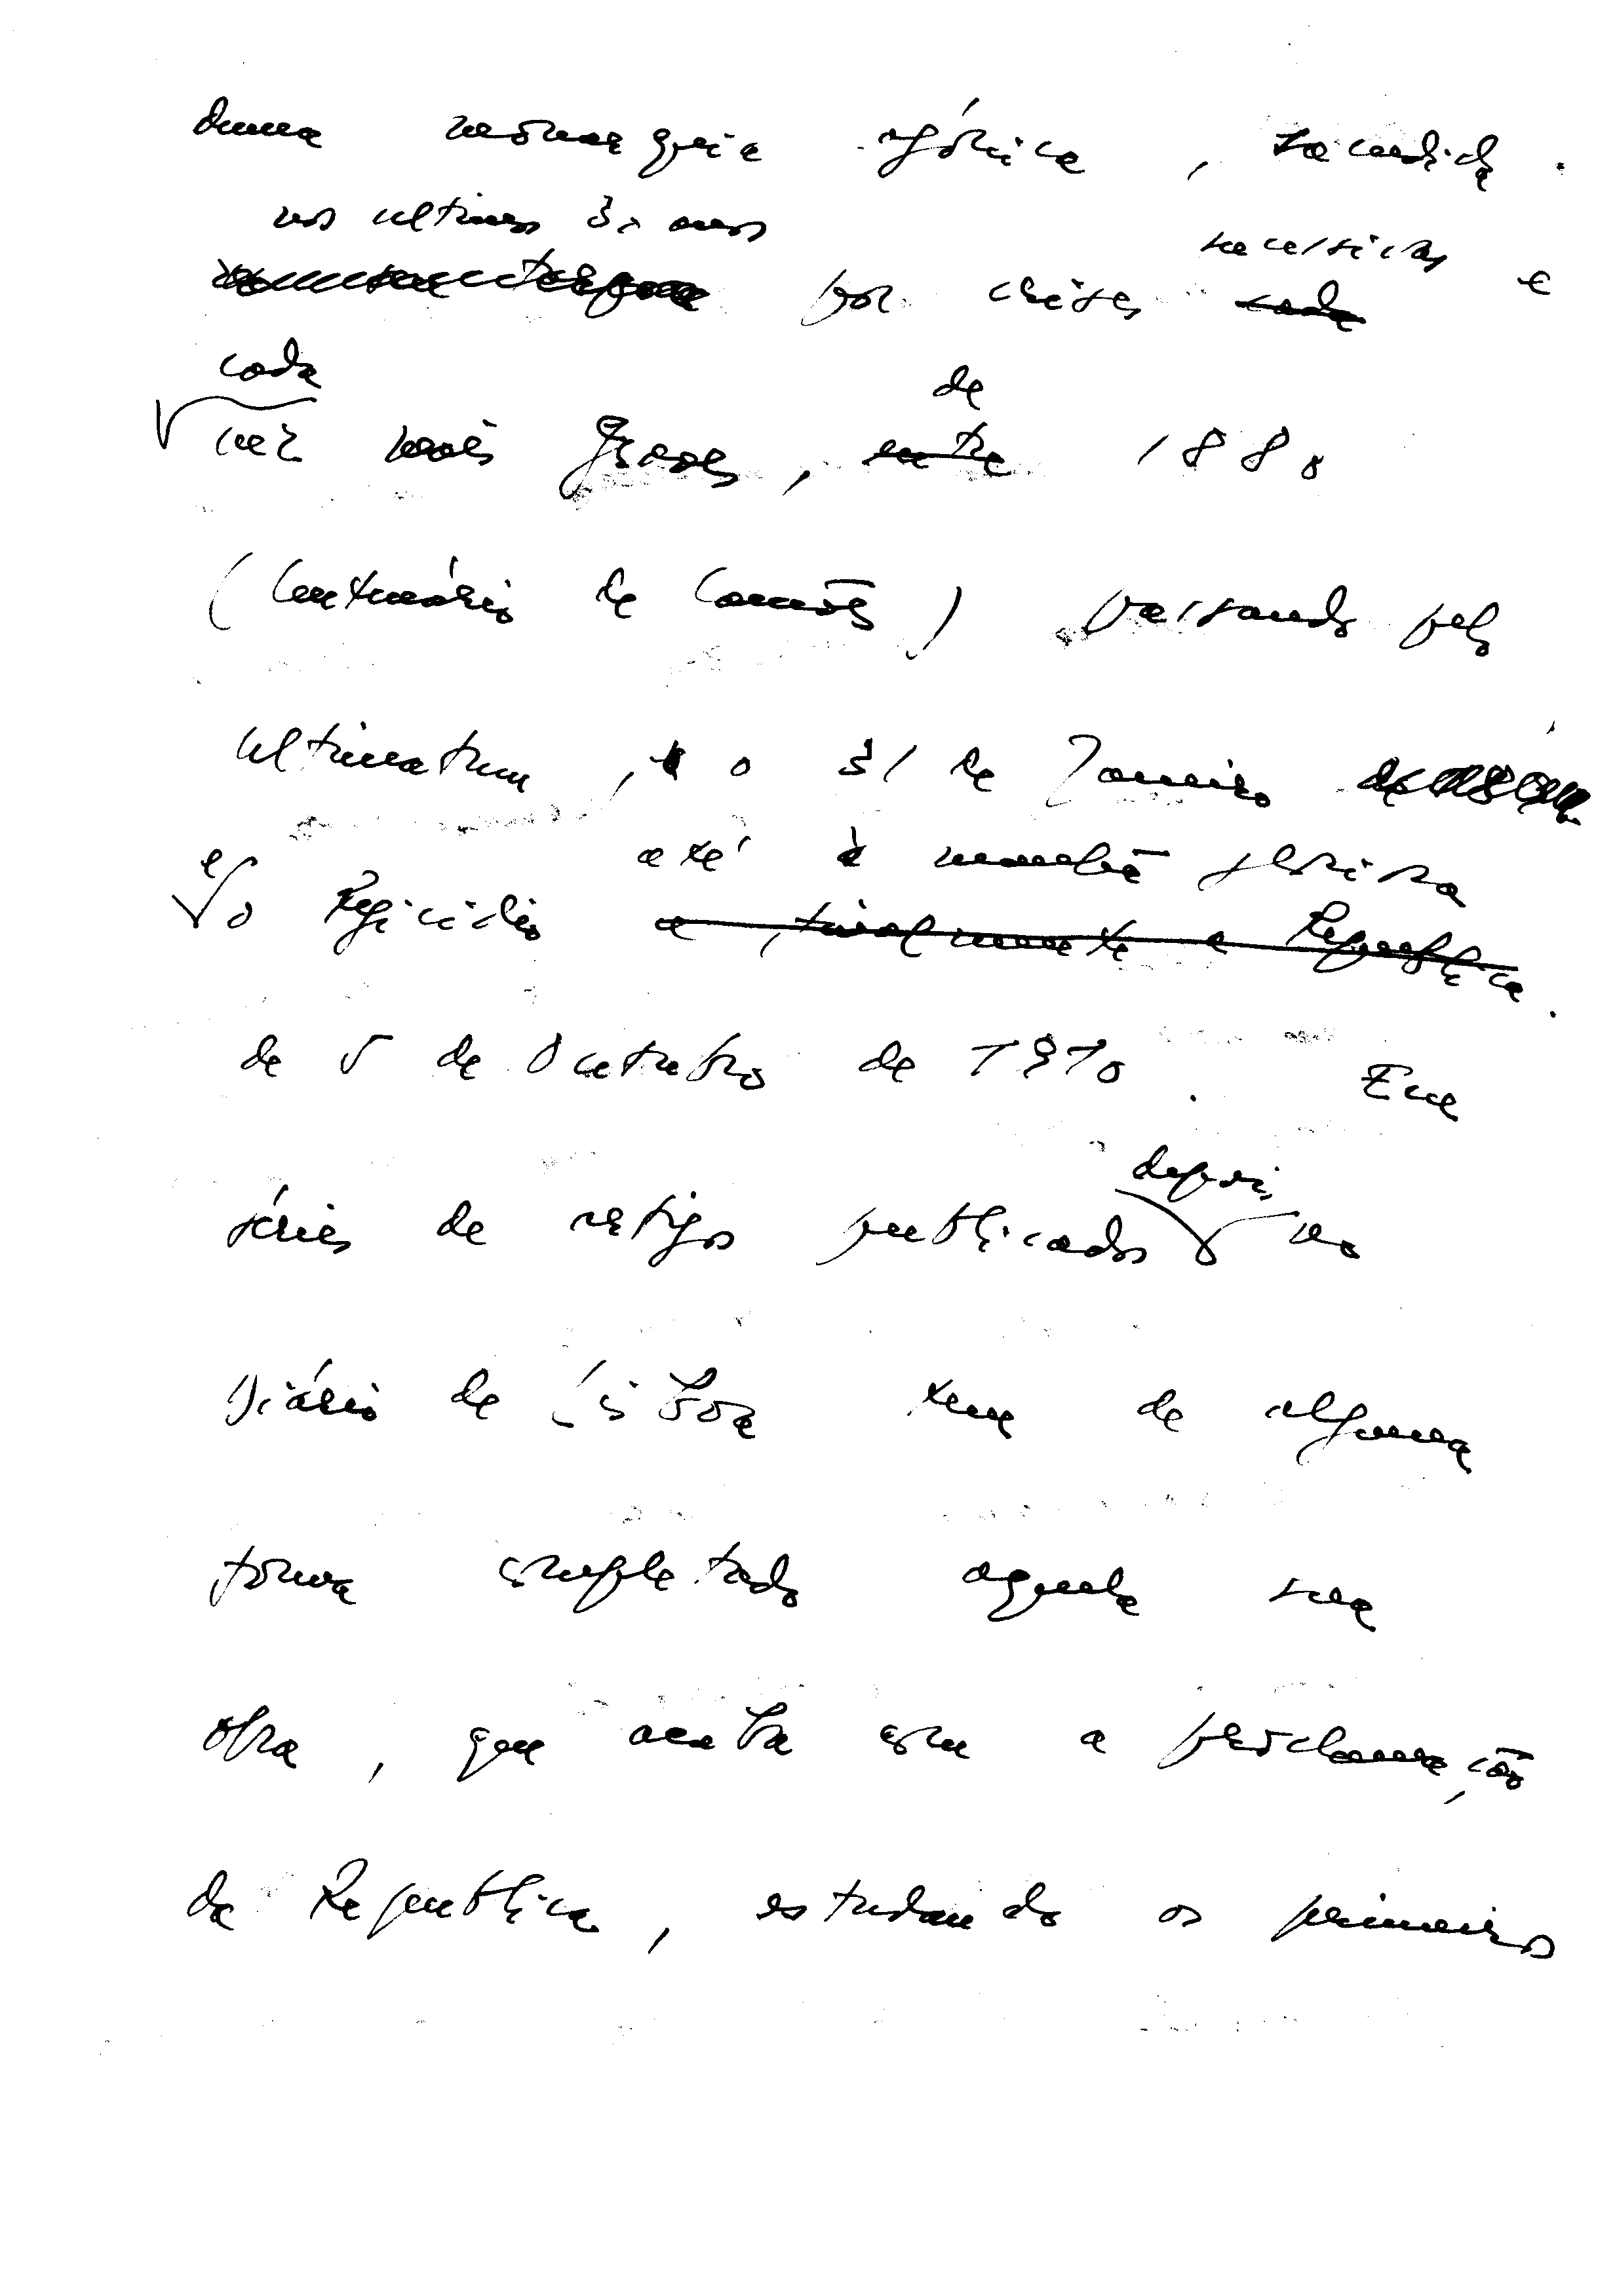 duma monarquia agónica, sacudida
nos ultimos 30 anos sucessivas e
por crises cada
cada
vez mais graves, entre de 1880
(Centenário de Camões) passando pelo
Ultimatum, o 31 de Janeiro
e até à manhã gloriosa
o Regicidio e, finalmente a Republica.
de 5 de Outubro de 1910. Em
depois
séries de artigos publicados no
Diário de Lisboa tem de alguma
forma completado aquela sua
obra, que acaba com a proclamação
da Republica, estudando os primeiros